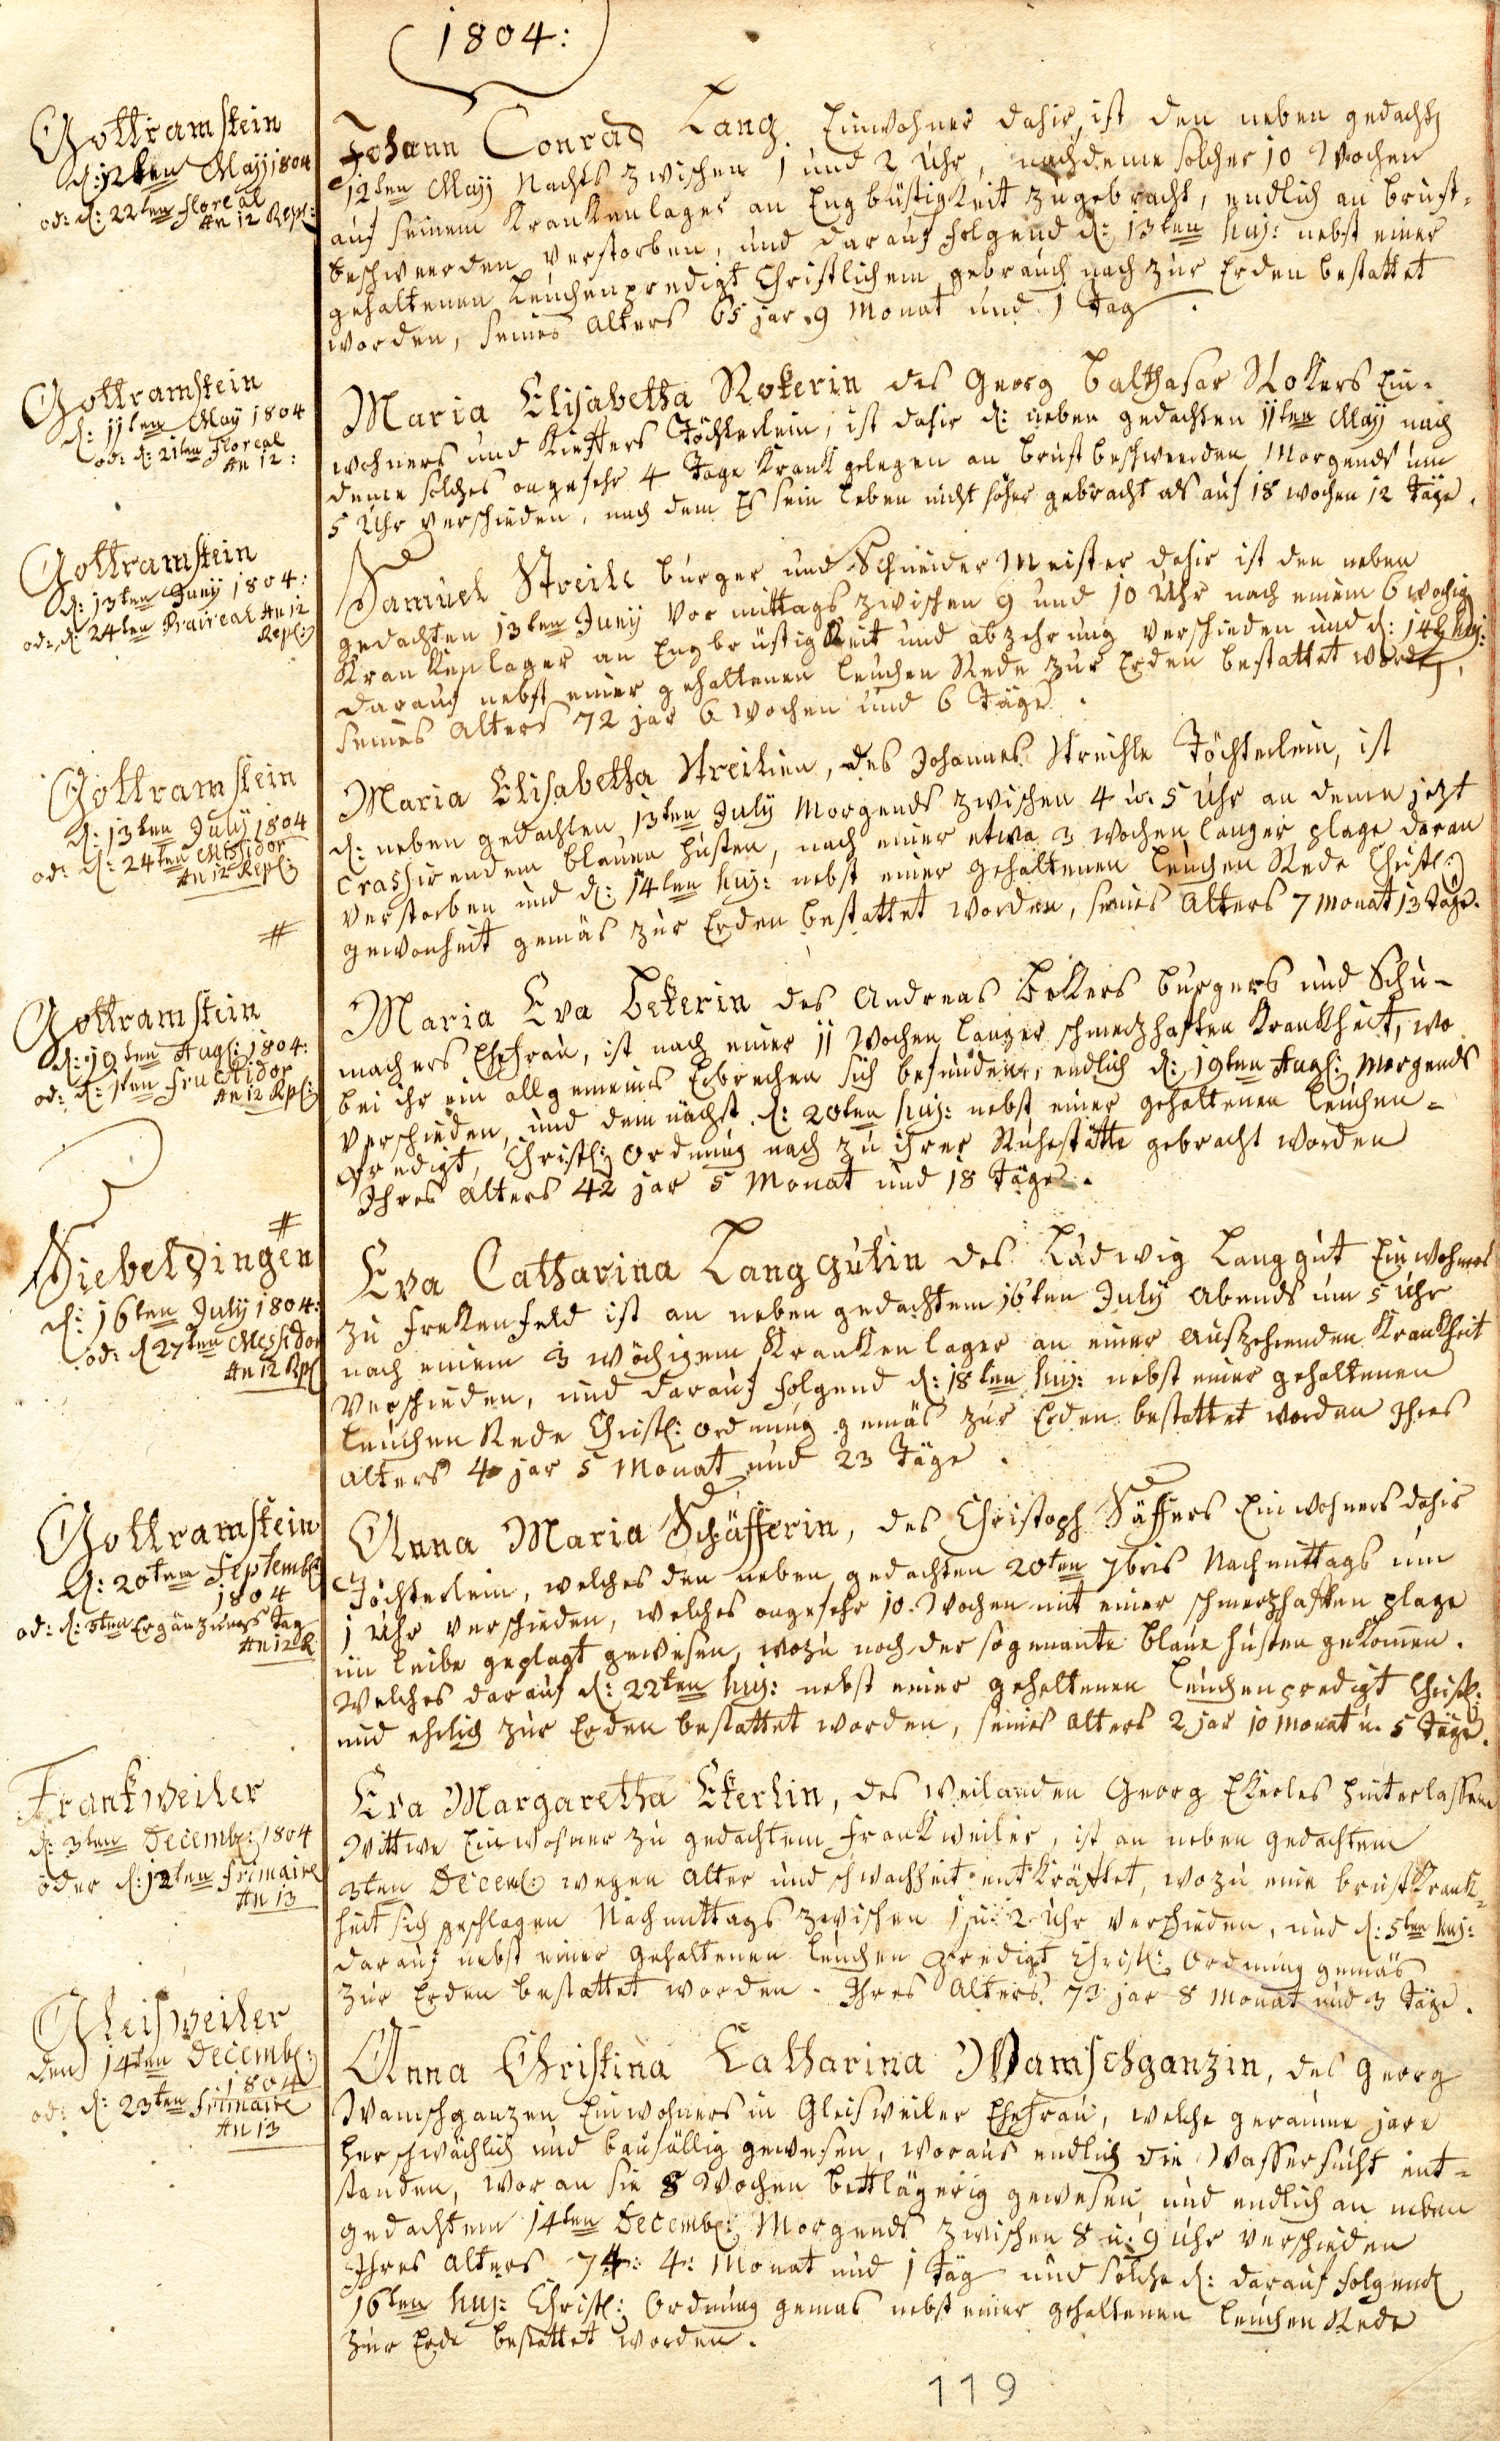 1804:
Gottramstein
d: 12ten Maÿ 1804
od: d: 22ten floreal
An 12 Repl:
Johann Conrad Lang Einwohner dahir, ist den neben gedachten
12ten Maÿ Nachts zwischen 1 und 2 Uhr, nachdeme solcher 10 Wochen
auf seinem Krankenlager an Engbrüstigkeit zugebracht, endlich an brust-
beschwerden verstorben, und darauf folgend d: 13ten huj: nebst einer
gehaltenen Leuchenpredigt Christlichem gebrauch nach zur Erden bestattet
worden, seines Alters 65 jar 9 Monat und 1 Tag.
Gottramstein
d: 11ten Maÿ 1804
od: d: 21ten Floreal
An 12:
Maria Elisabetha Rokerin des Georg Balthasar Rokers Ein-
wohners und Kieffers Töchterlein, ist dahir d: neben gedachten 11ten Maÿ nach
deme solches ongefehr 4 Tage Krank gelegen an brust beschwerden Morgends um
5 Uhr verschieden, nach dem Es sein Leben nicht höher gebracht als auf 18 wochen 12 Täge.
Gottramstein
d: 13ten Junÿ 1804:
od: d: 24ten Praireal An 12
Repl:
Samuel Streile burger und Schneider Meister dahir ist den neben
gedachten 13ten Junÿ Vor mittags zwischen 9 und 10 Uhr nach einem 6 wochig
Kranken lager an Engbrüstigkeit und abzehrung verschieden und d: 14 huj:
darauf nebst einer gehaltenen Leuchen Rede zur Erden bestattet worden,
seines Alters 72 jar 6 Wochen und 6 Täge.
Gottramstein
d: 13ten Julÿ 1804
od: d: 24ten Messidor
An 12 Repl:
#
Maria Elisabetha Streilien, des Johannes Streihle Töchterlein, ist
d: neben gedachten 13ten Julÿ Morgends zwischen 4 u. 5 Uhr an deme jezt
crassirendem blauen husten, nach einer etwa 3 Wochen langer plage daran
verstorben und d: 14ten huj: nebst einer gehaltenen Leuchen Rede Christl:
gewonheit gemäs zur Erden bestattet worden, seines Alters 7 Monat 13 Täge.
Gottramstein
d: 19ten Augl: 1804:
od: d: 1ten fructidor
An 12 Rpl:
Maria Eva Bekerin des Andreas Bekers burgers und Schu-
machers Ehefrau, ist nach einer 11 Wochen langer schmerzhaften Krankheit, wo
bei ihr ein allgemeines Erbrechen sich befunden, endlich d: 19ten Augl: Morgends
verschieden, und dem nächst d: 20ten huj: nebst einer gehaltenen Leuchen-
predigt, Christl: Ordnung nach zu ihrer Ruhestätte gebracht worden
Ihres Alters 42 jar 5 Monat und 18 Täge.
#
Siebeldingen
d: 16ten Julÿ 1804:
od: d 27ten Messidor
An 12 Rpl
Eva Catharina Langgutin des Ludwig Langgut Einwohners
zu Frekenfeld ist an neben gedachtem 16ten Julÿ Abends um 5 Uhr
nach einem 3 wöchigem Krankenlager an einer Auszehrenden Krankheit
verschieden, und darauf folgend d: 18ten huj: nebst einer gehaltenen
Leuchen Rede Christl: ordnung gemäs zur Erden bestattet worden Ihres
Alters 4 jar 5 Monat und 23 Täge.
Gottramstein
d: 20ten Septembl:
1804
od: d: 3ten Ergänzungs Tag
An 12 R
Anna Maria Schäfferin, des Christoph Säffers Einwohners dahir
Töchterlein, welches den neben gedachten 20ten 7bris Nachmittags um
1 Uhr verschieden, welches ongefehr 10. Wochen mit einer schmerzhaften plage
im Leibe geplagt gewesen, wozu noch der sogenante blaue husten gekommen.
Welches darauf d: 22ten huj: nebst einer gehaltenen Leuchenpredigt Christl:
und ehrlich zur Erden bestattet worden, seines Alters 2 jar 10 Monat u. 5 Täge.
Frankweiler
d: 3ten Decembl: 1804
oder d: 12ten frimaire
An 13
Eva Margaretha Ekerlin, des weilanden Georg Ekerles hinterlassene
Wittwe Einwohner zu gedachtem Frankweiler, ist an neben gedachtem
3ten Decembl: wegen Alter und schwachheit entkräfftet, wozu eine brustkrank-
heit sich geschlagen Nachmittags zwischen 1 u: 2 Uhr verschieden, und d: 5ten huj:
darauf nebst einer gehaltenen Leuchen predigt Christl: Ordnung gemäs
zur Erden bestattet worden. Ihres Alters 73 jar 8 Monat und 3 Täge.
Gleisweiler
den 14ten Decembl:
1804
od: d: 23ten frimaire
An 13
Anna Christina Catharina Wamschganzin, des Georg
Wamschganzen Einwohners in Gleisweiler Ehefrau, welche geraume jare
her schwächlich und baufällig gewesen, woraus endlich die Wassersucht ent-
standen, woran sie 8 Wochen bettlägerig gewesen und endlich an neben
gedachtem 14ten Decembl: Morgends zwischen 8 u: 9 Uhr verschieden
Ihres Alters 74: 4: Monat und 1 Täg und solche d: darauf folgend
16ten huj: Christl: Ordnung gemäs nebst einer gehaltenen Leuchen Rede
zur Erde bestattet worden.
119